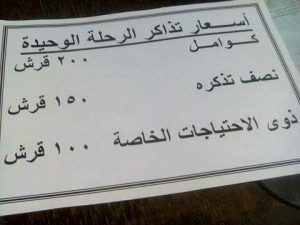 أسعار تذاكر الرحلة الوحيدة
كوامل
٢٠٠ قرش
نصف تذكره
١٥٠ قرش
ذوى الاحتياجات الخاصة
١٠٠ قرش